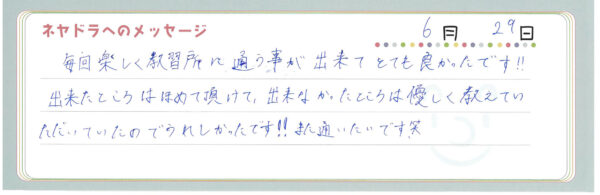 ネヤドラへのメッセージ
6月 29日
毎回楽しく教習所に通う事が出来てとても良かったです!!
出来たところはほめて頂けて、出来なかったところは優しく教えてい
ただいていたのでうれしかったです!!また通いたいです笑